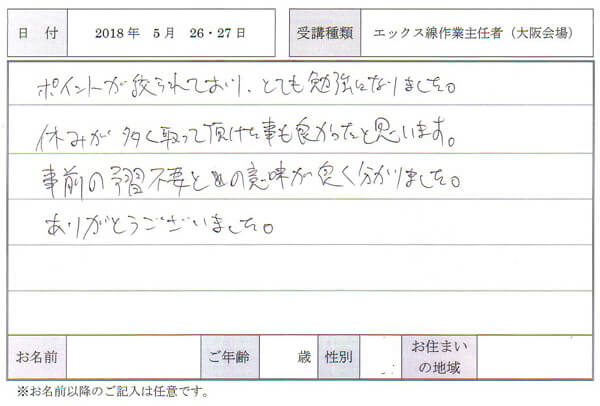 日 付 2018 年 5 月 26・27 日 受講種類 エックス線作業主任者（大阪会場）
ポイントが絞られており、とても勉強になりました。
休みが多く取って頂けた事も良かったと思います。
事前の予習不要との意味が良く分かりました。
ありがとうございました。
お名前 ご年齢 歳 性別 お住まい
の地域
※お名前以降のご記入は任意です。